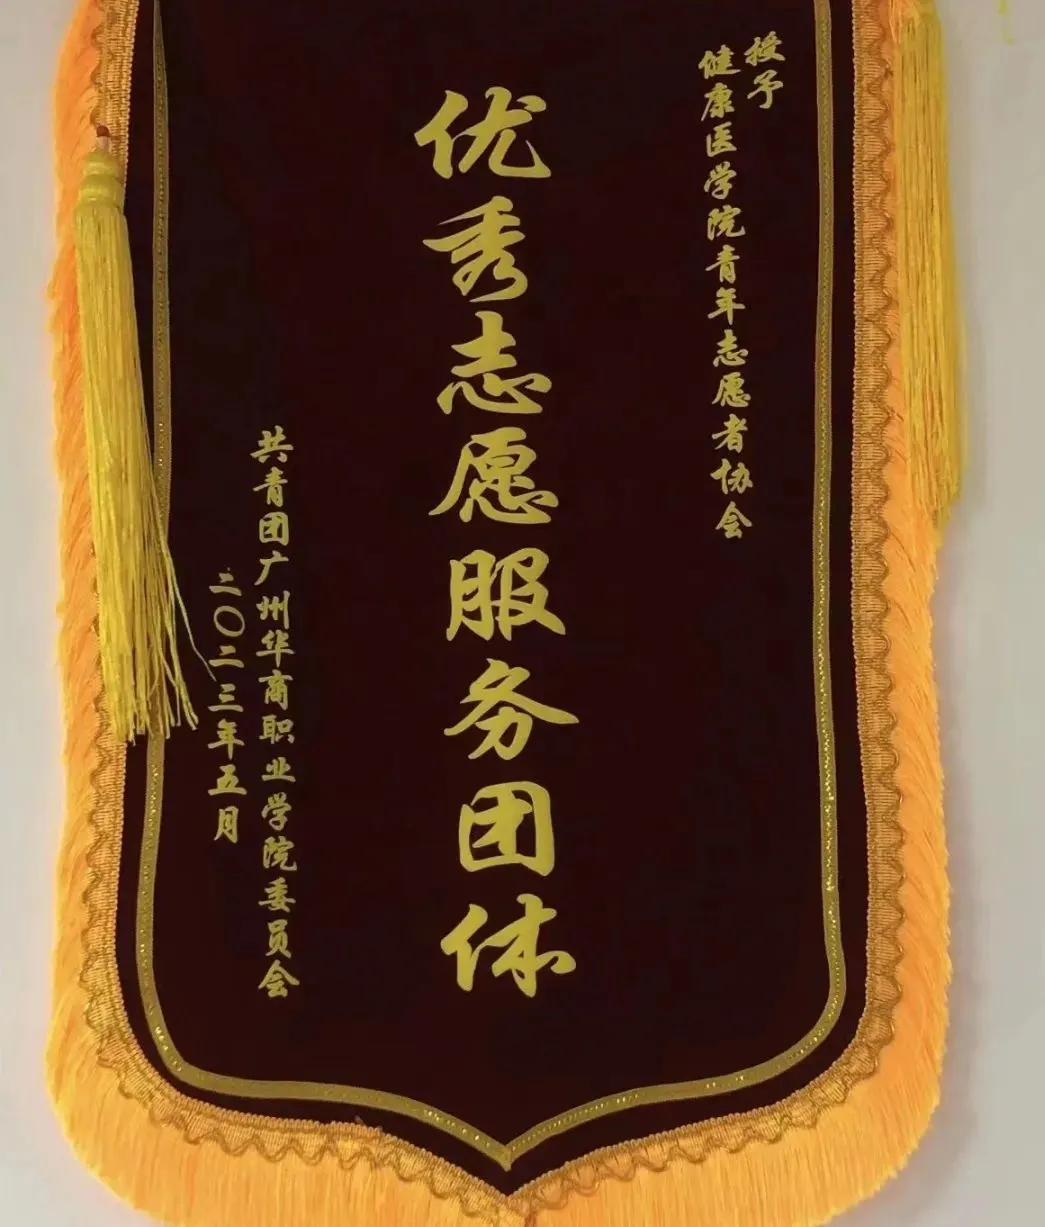 授予
健康医学院青年志愿者协会
优秀志愿服务团体
共青团广州华商职业学院委员会
二〇二三年五月